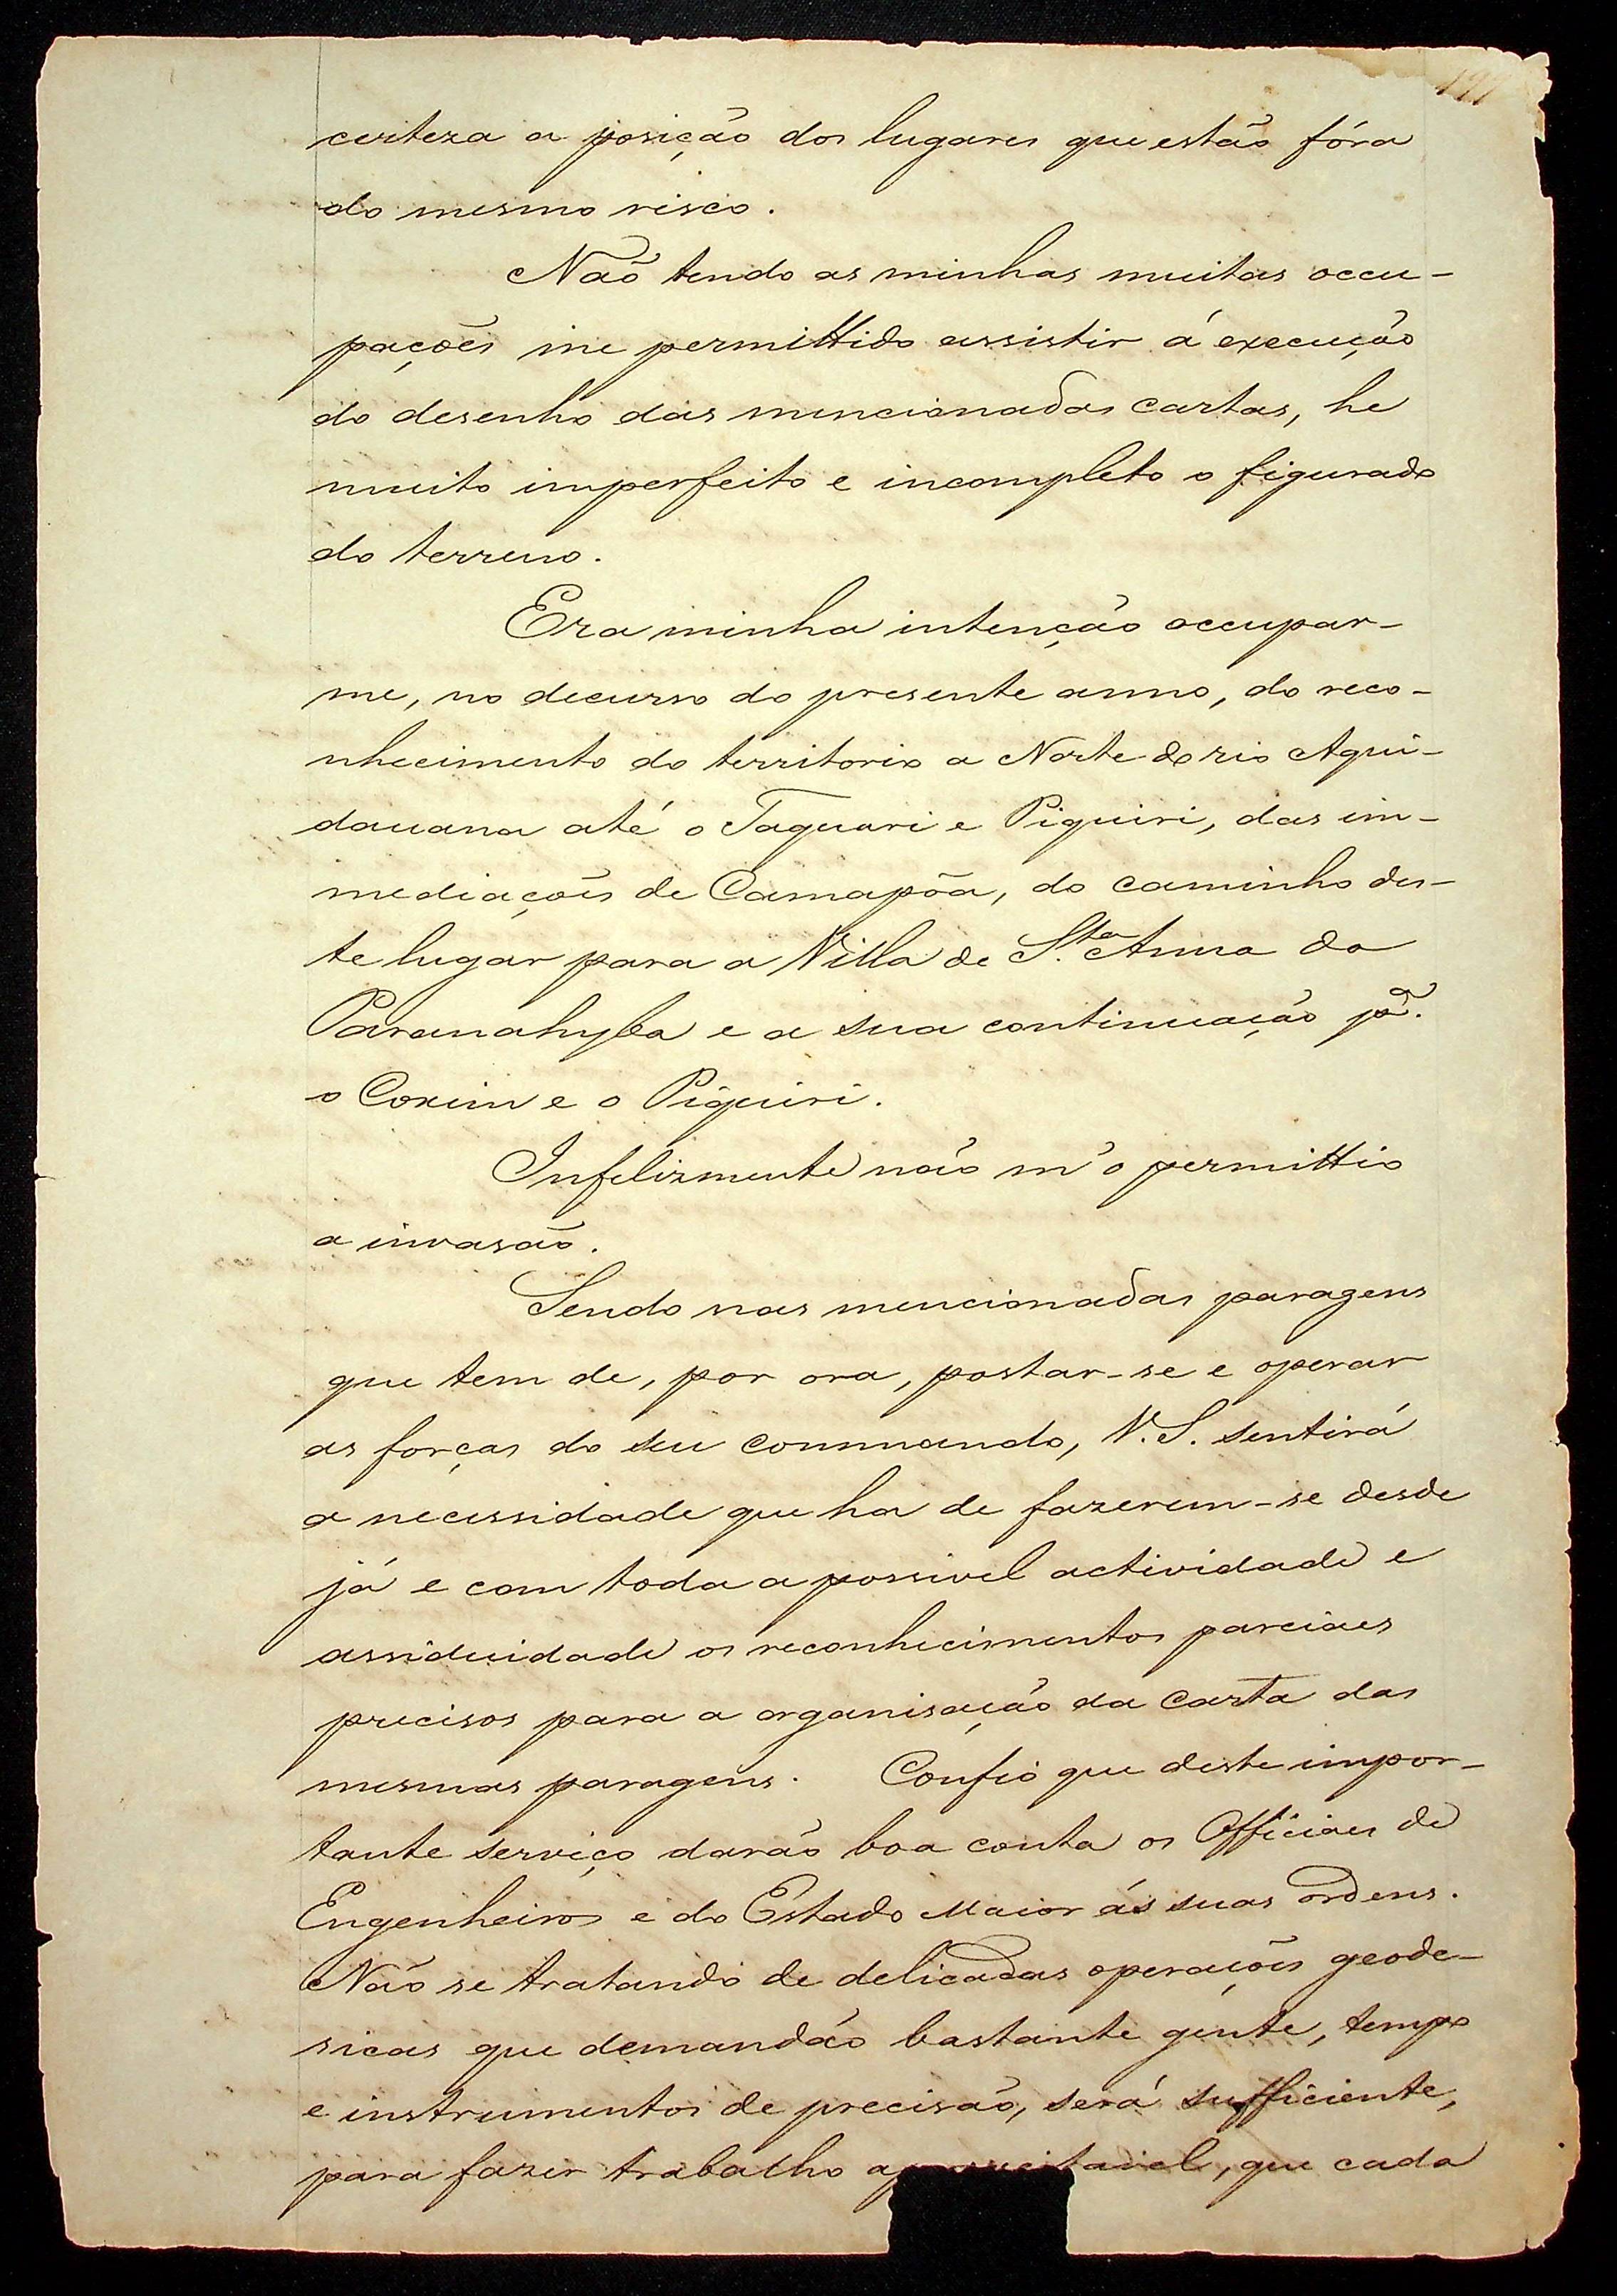 certeza a posição dos lugares que estão fóra
do mesmo risco.
Não tendo as minhas muitas occu-
pações me permittido assistir á execução
do desenho das mencionadas cartas, he
muito imperfeito e incompleto o figurado
do terreno.
Era minha intenção occupar-
me, no decurso do presente anno, do reco-
nhecimento do territorio a Norte do rio Aqui-
dauana até o Taquari e Piquiri, das im-
mediações de Camapõa, do caminho des-
te lugar para a Villa de S.ta Anna do
Paranahyba e a sua continuação p.ª
o Coxim e o Piquiri.
Infelizmente não m'o permittio
a invasão.
Sendo nas mencionadas paragens
que tem de, por ora, postar-se e operar
as forças do seu commando, V.S. sentirá
a necessidade que ha de fazerem-se desde
já e com toda a possivel actividade e
assiduidade os reconhecimentos parciaes
precisos para a organisação da carta das
mesmas paragens. Confio que deste impor-
tante serviço darão boa conta os Officiaes de
Engenheiros e do Estado Maior ás suas ordens.
Não se tratando de delicadas operações geode-
sicas que demandão bastante gente, tempo
e instrumentos de precisão, será sufficiente,
para fazer trabalho aproveitavel, que cada